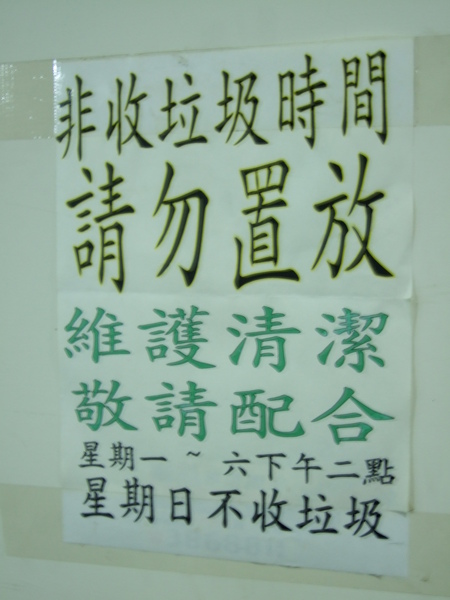 非收垃圾時間
請勿置放
維護清潔
敬請配合
星期一 ~ 六下午二點
星期日不收垃圾